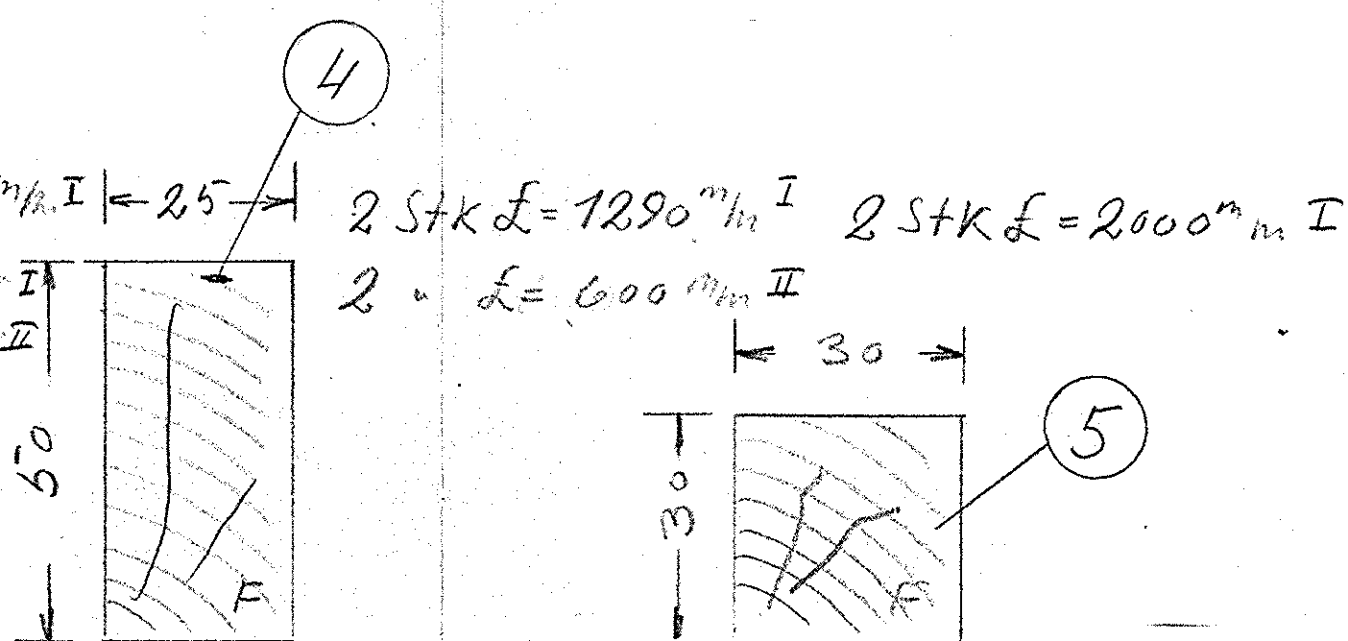 4
m/m I 25 2 Stk £ = 1290 m/m I 2 Stk £ = 2000 m/m I
I 2 " £ = 600 m/m II
II
30
50
30
5
F
F